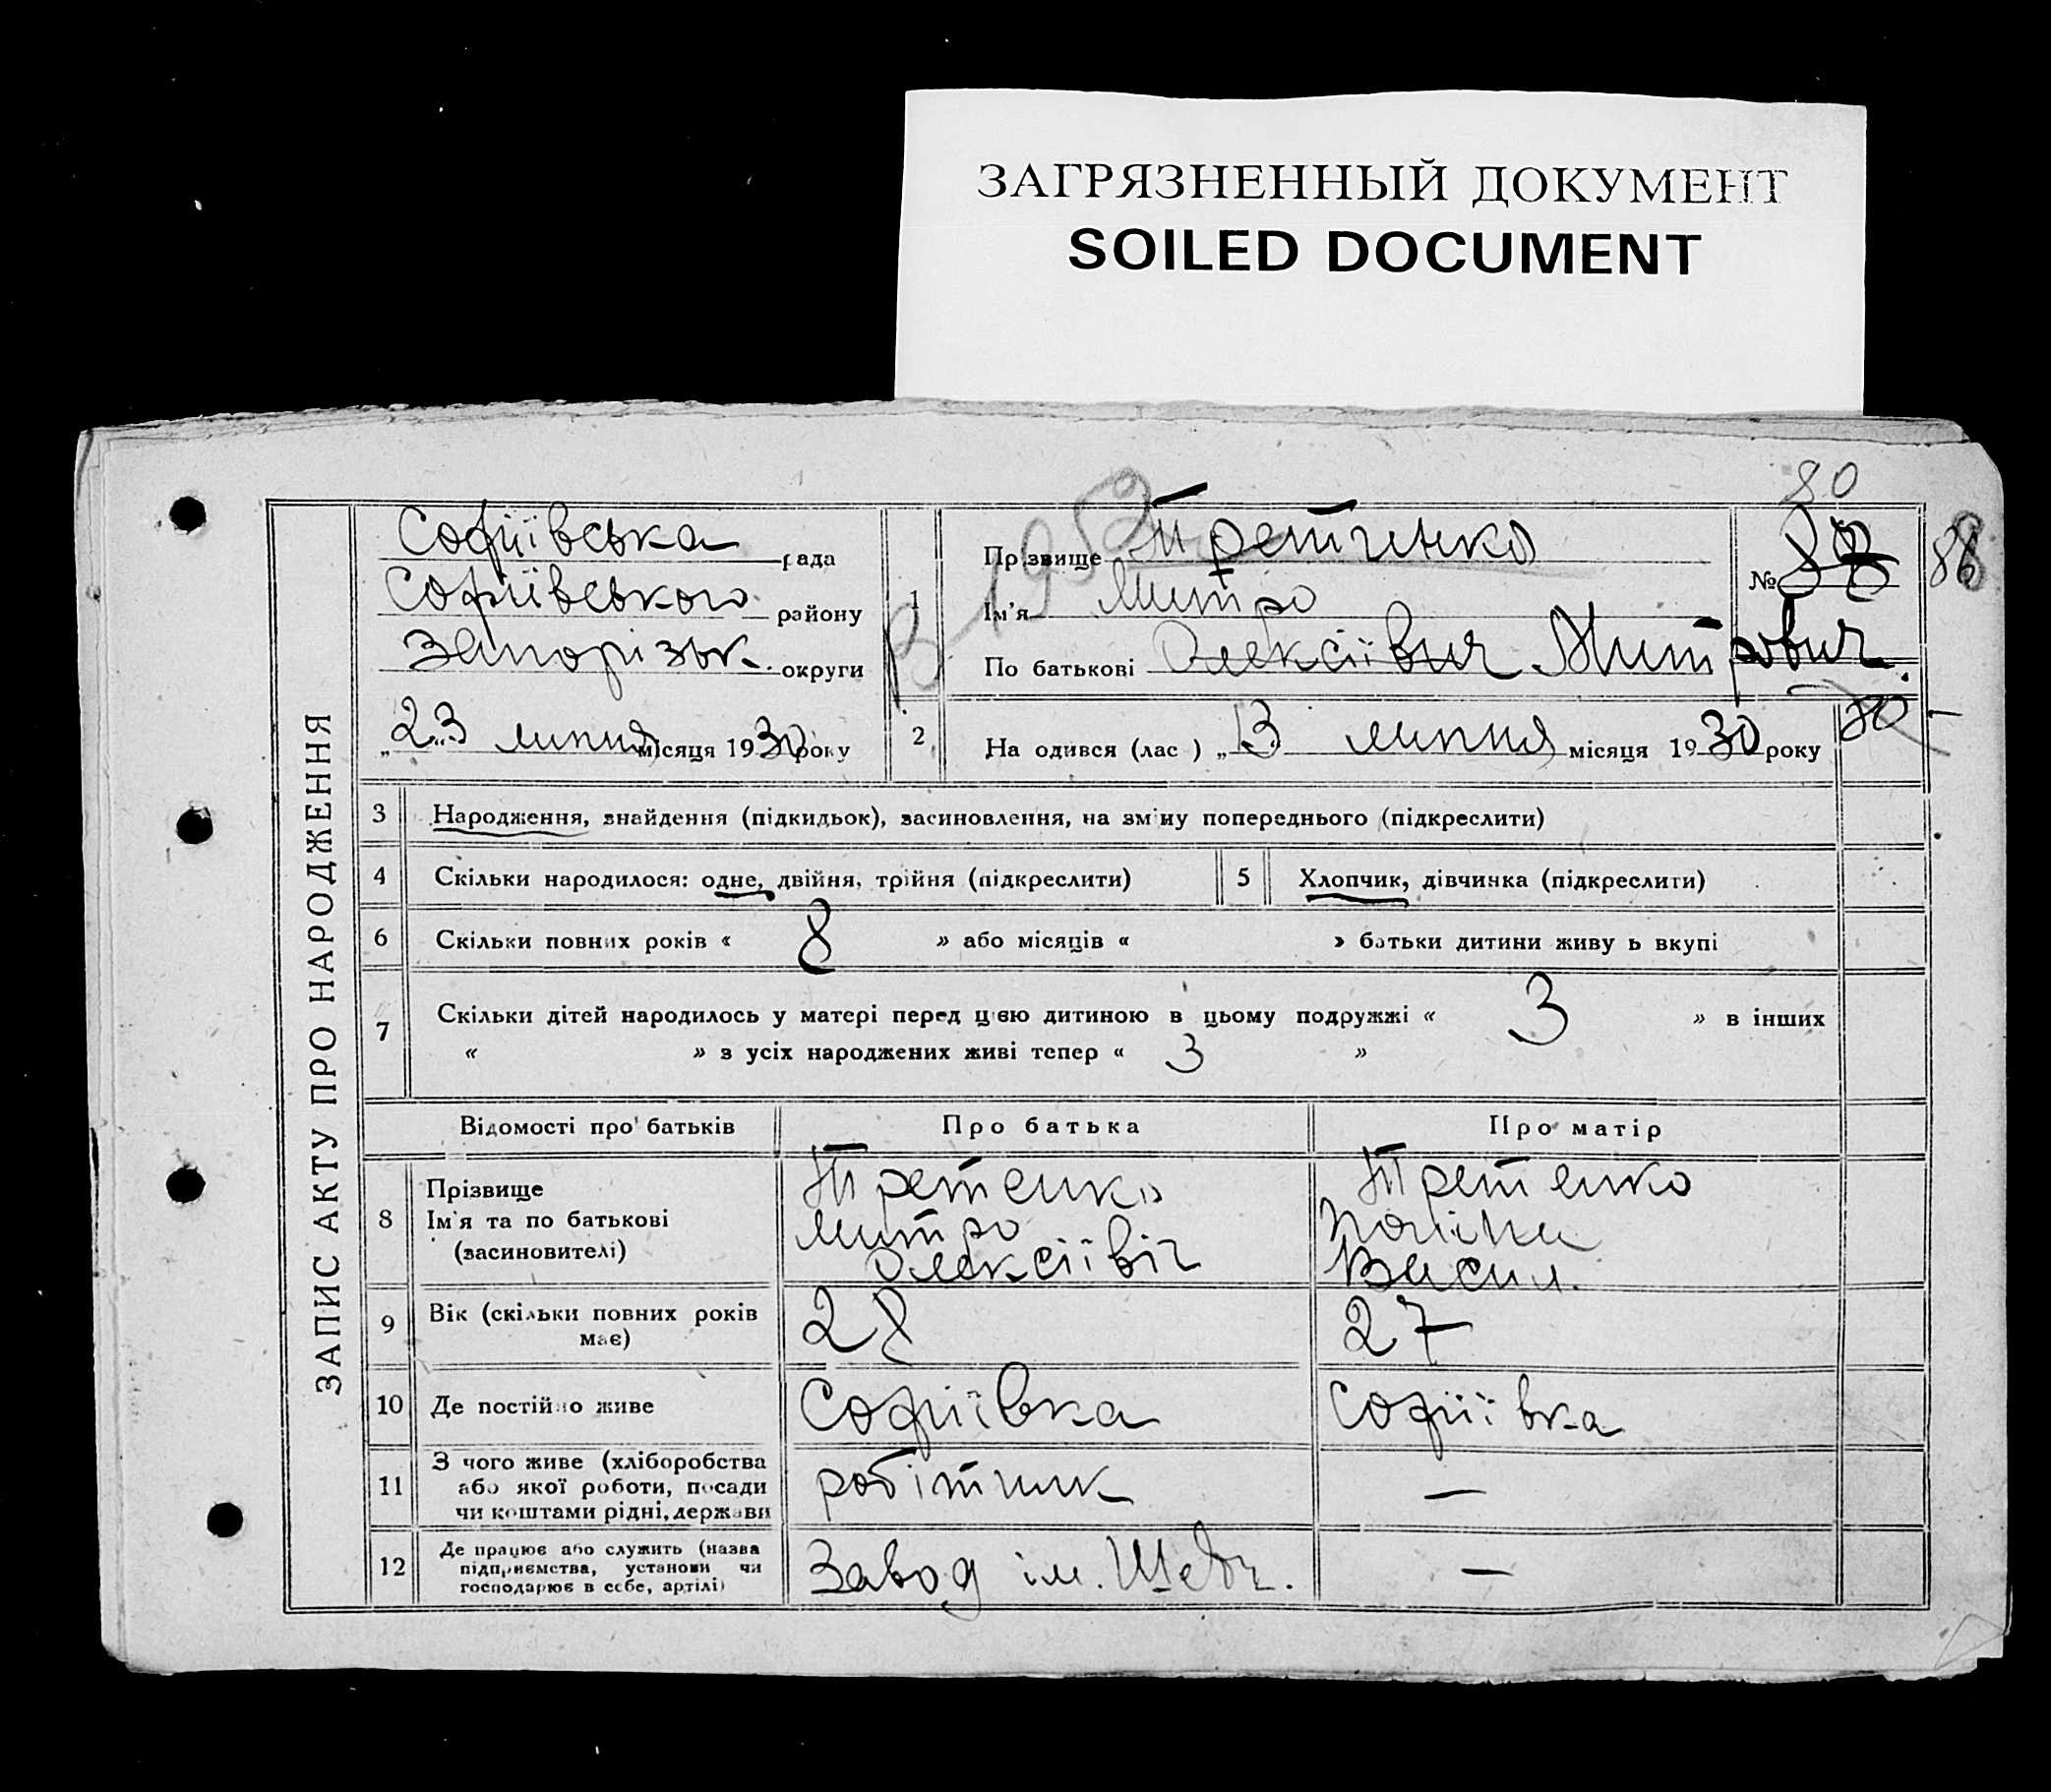 ЗАГРЯЗНЕННЫЙ ДОКУМЕНТ
SOILED DOCUMENT
80
ЗАПИС АКТУ ПРО НАРОДЖЕННЯ
Софіївська рада
Софіївського району
Запорізьк. округи
„23 липня місяця 1930 року
1
Прізвище Третченко
Ім'я Митро
По батькові Олексіївич Митрович.
№
88
2
На одився (лас ) „13 липня місяця 1930 року
80
3 Народження, знайдення (підкидьок), засиновлення, на зміну попереднього (підкреслити)
4 Скільки народилося: одне, двійня, трійня (підкреслити)
5 Хлопчик, дівчинка (підкреслити)
6 Скільки повних років « 8 » або місяців « » батьки дитини живу ь вкупі
7 Скільки дітей народилось у матері перед цією дитиною в цьому подружжі « 3 » в інших
« » з усіх народжених живі тепер « 3 »
Відомості про батьків
Про батька
Про матір
8 Прізвище
Ім'я та по батькові
(засиновителі)
Третенко
Митро
Олексіївіч
Третенко
Поліна
Васил.
9 Вік (скільки повних років
має)
28
27
10 Де постійно живе
Софіївка
Софіївка
11 З чого живе (хліборобства
або якої роботи, посади
чи коштами рідні, держави
робітник
—
12 Де працює або служить (назва
підприємства, установи чи
господарює в себе, артілі)
Завод ім. Шевч.
—